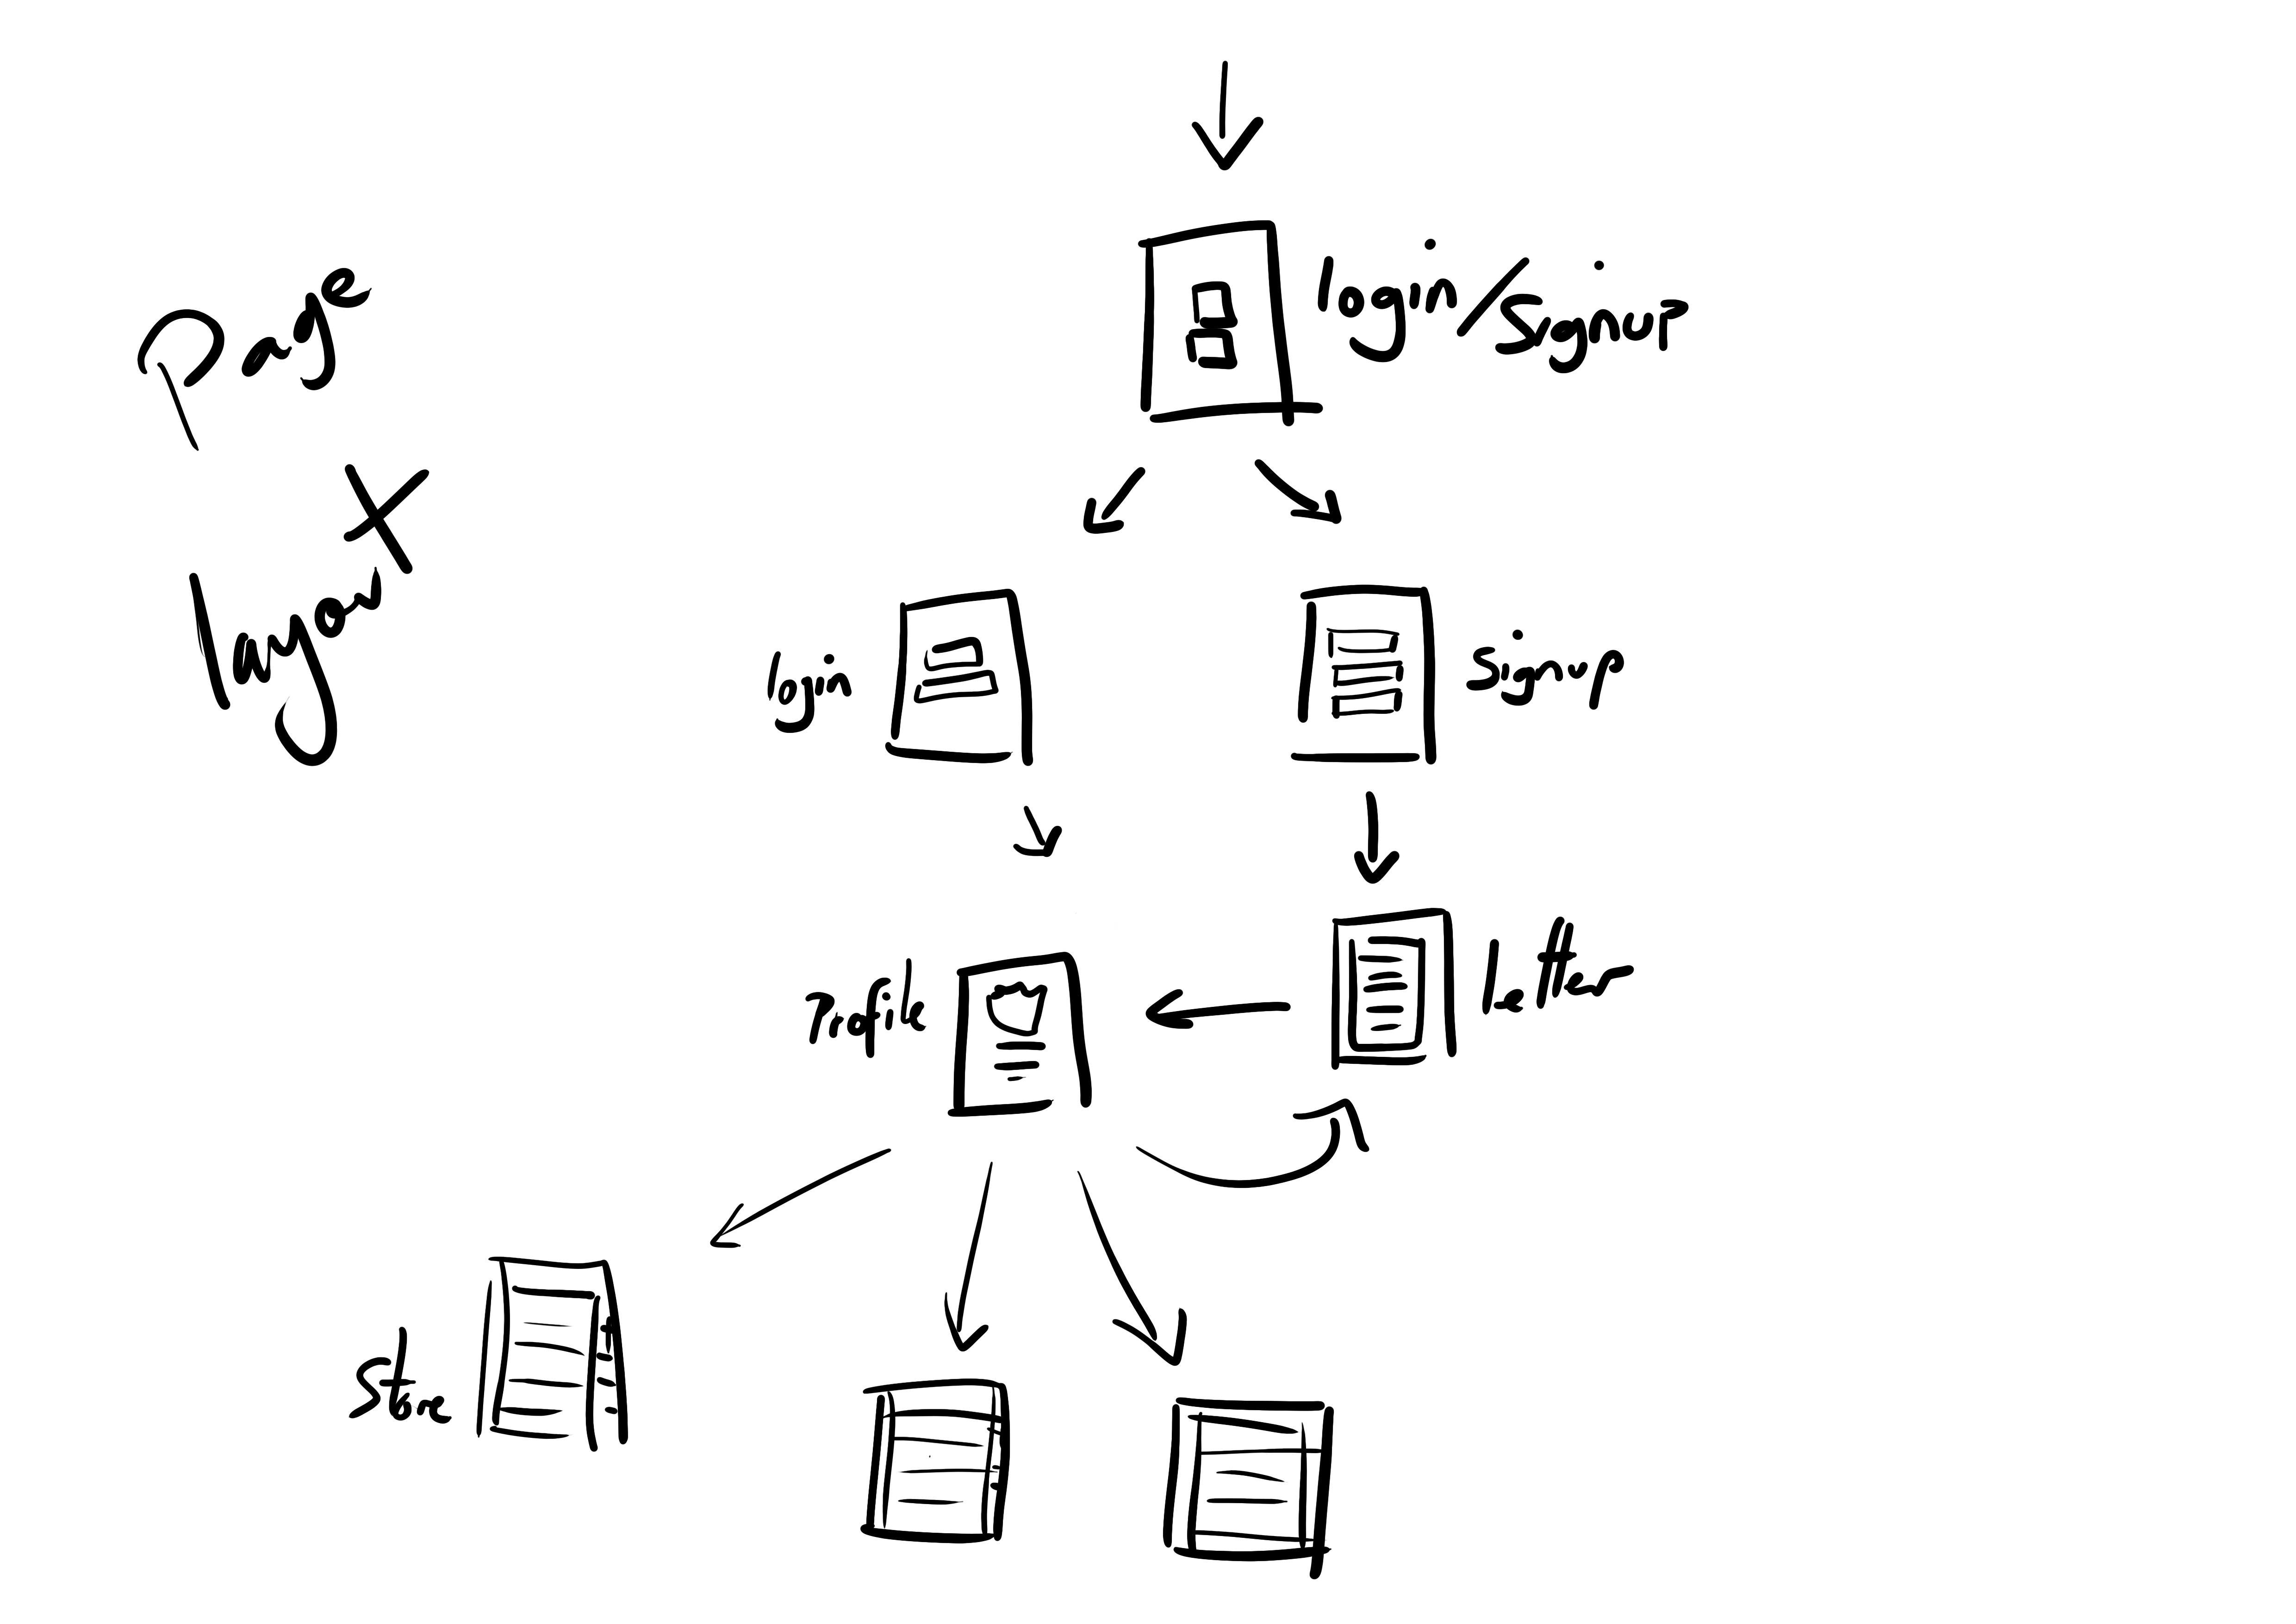 Page
layout
login/signup
login
signup
Profile
Letter
Store